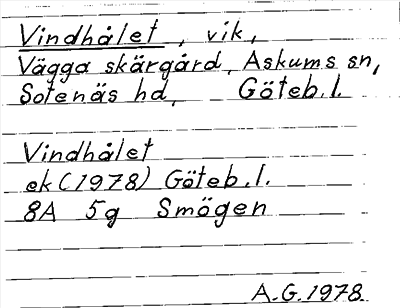 Vindhålet, vik,
Vägga skärgård, Askums sn,
Sotenäs hd, Göteb.l.
Vindhålet
ek (1978) Göteb.l.
8A 5g Smögen
A.G.1978